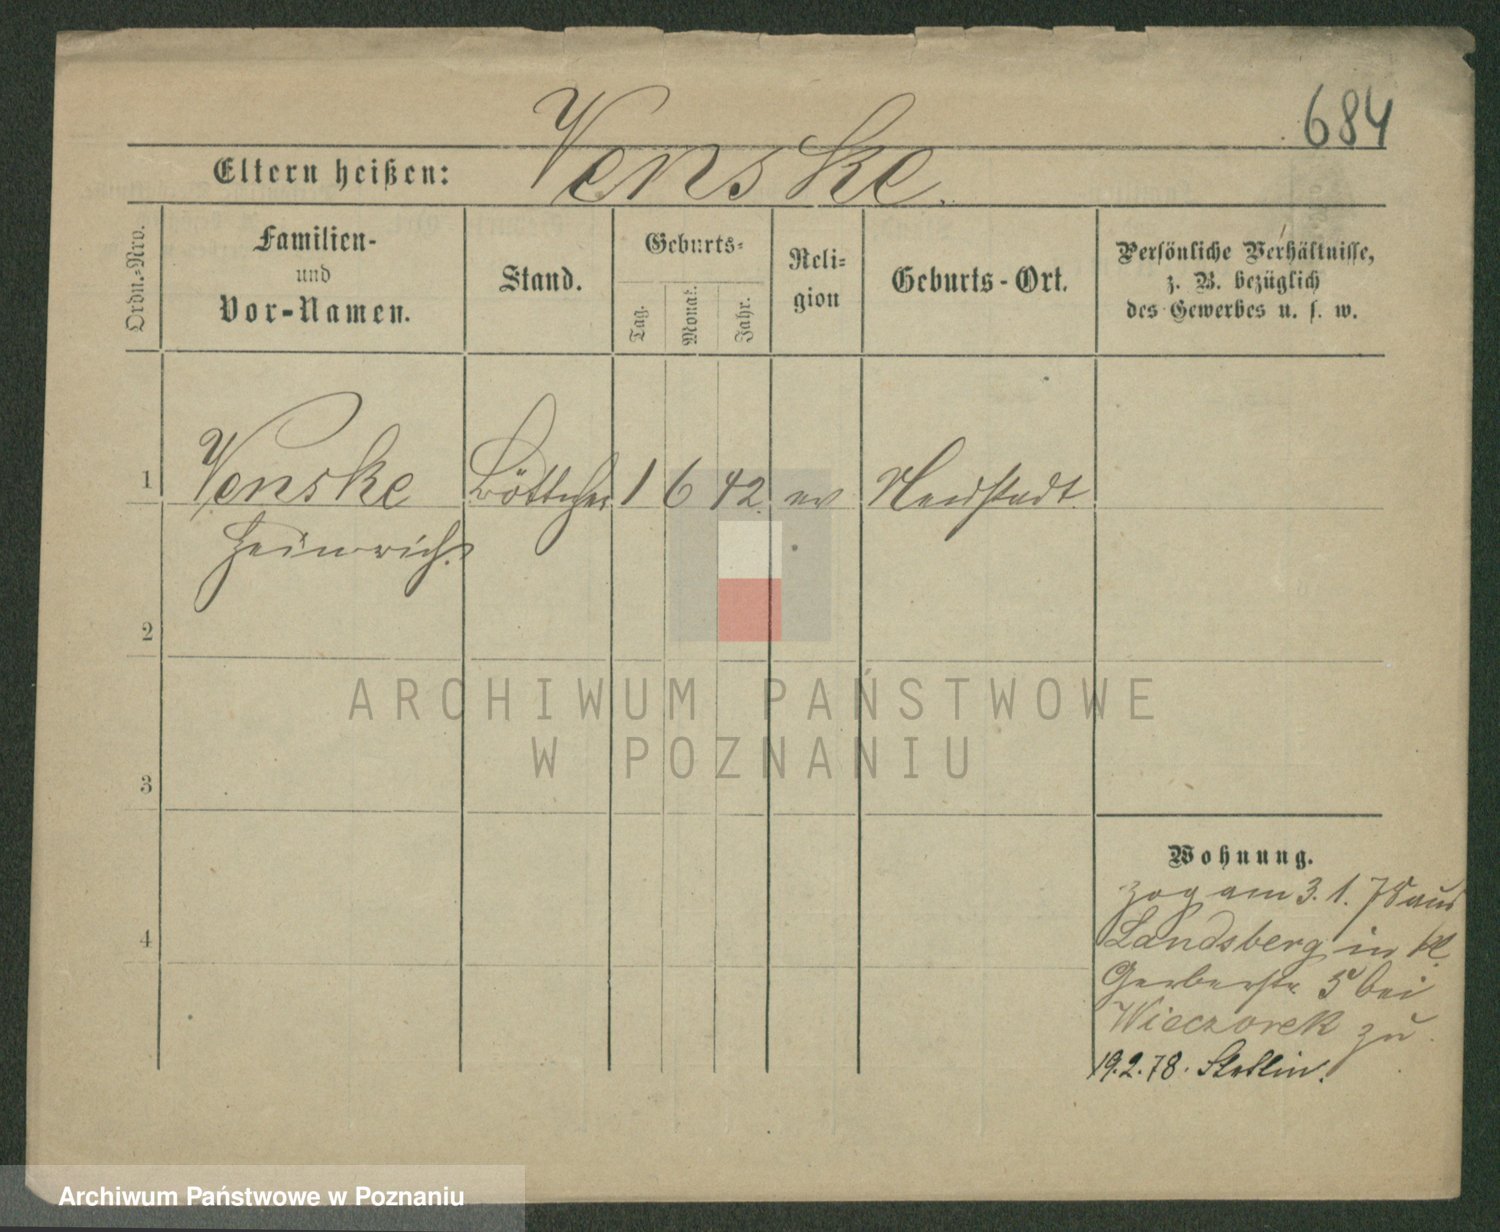 684
Eltern heißen: Venske.
Ordn.-Nro.
Familien-
und
Vor-Namen.
Stand.
Geburts-
Tag.
Monat.
Jahr.
Reli-
gion
Geburts-Ort.
Persönliche Verhältnisse,
z. B. bezüglich
des Gewerbes u. s. w.
1 Venske Böttcher 1 6 42. ev Neustadt.
Heinrich.
2
3
4
ARCHIWUM PAŃSTWOWE
W POZNANIU
Wohnung.
zog am 3. 1. 78 aus
Landsberg in kl.
Gerberstr. 5 bei
Wieczorek zu.
19.2.78. Stettin.
Archiwum Państwowe w Poznaniu